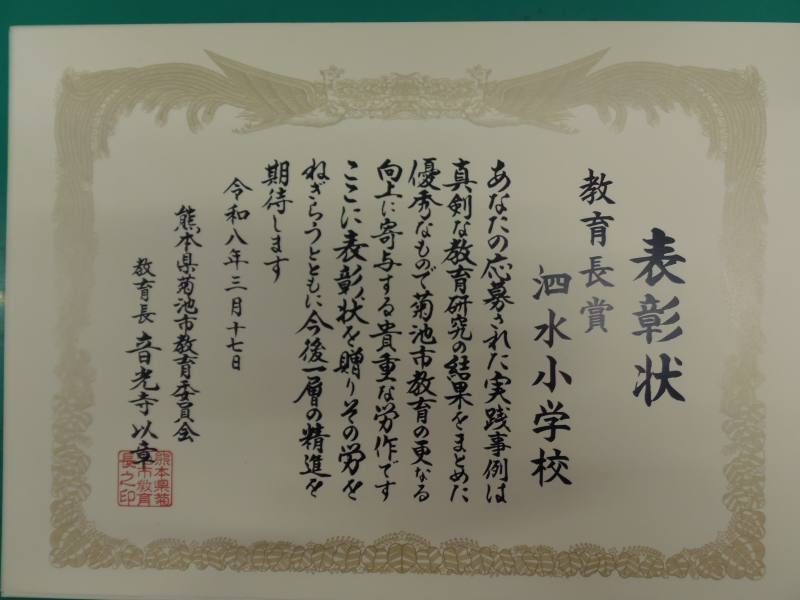 表彰状
教育長賞
泗水小学校
あなたの応募された実践事例は
真剣な教育研究の結果をまとめた
優秀なもので菊池市教育の更なる
向上に寄与する貴重な労作です
ここに表彰状を贈りその労を
ねぎらうとともに今後一層の精進を
期待します
令和八年三月十七日
熊本県菊池市教育委員会
教育長 音光寺以章
熊本県菊
池市教育
長之印